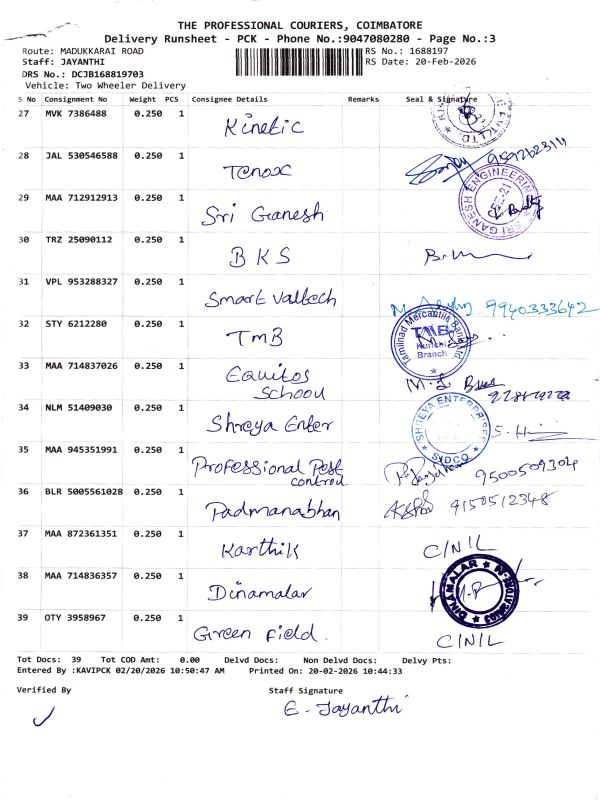 THE PROFESSIONAL COURIERS, COIMBATORE
Delivery Runsheet - PCK - Phone No.:9047080280 - Page No.:3
Route: MADUKKARAI ROAD RS No.: 1688197
Staff: JAYANTHI RS Date: 20-Feb-2026
DRS No.: DCJB168819703
Vehicle: Two Wheeler Delivery
S No Consignment No Weight PCS Consignee Details Remarks Seal & Signature
27 MVK 7386488 0.250 1 Kinetic
28 JAL 530546588 0.250 1 Tenox
29 MAA 712912913 0.250 1 Sri Ganesh SRI GANESH ENGINEERING
30 TRZ 25090112 0.250 1 BKS
31 VPL 953288327 0.250 1 Smart valtech 9940333642
32 STY 6212280 0.250 1 TMB Tamilnad Mercantile Bank Ltd TMB Branch
33 MAA 714837026 0.250 1 Equitos
School
34 NLM 51409030 0.250 1 Shreya Enter SHREYA ENTERPRISES SIDCO
35 MAA 945351991 0.250 1 Professional Pest
control 9500509304
36 BLR 5005561028 0.250 1 Padmanabhan 9150512348
37 MAA 872361351 0.250 1 Karthik C/N/L
38 MAA 714836357 0.250 1 Dinamalar DINAMALAR
39 OTY 3958967 0.250 1 Green Field. C/N/L
Tot Docs: 39 Tot COD Amt: 0.00 Delvd Docs: Non Delvd Docs: Delvy Pts:
Entered By :KAVIPCK 02/20/2026 10:50:47 AM Printed On: 20-02-2026 10:44:33
Verified By Staff Signature
E. Jayanthi